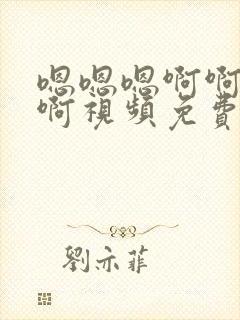 嗯嗯嗯啊啊
啊視頻免費
劉亦菲